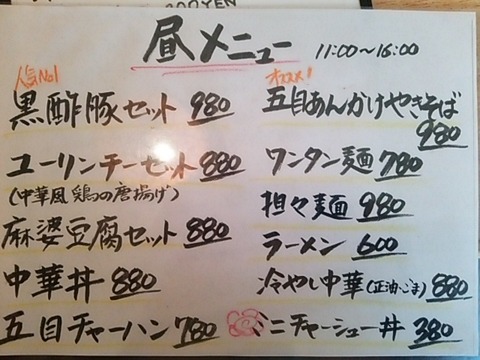 昼メニュー 11:00〜16:00
人気No1
黒酢豚セット 980
ユーリンチーセット 880
(中華風鶏の唐揚げ)
麻婆豆腐セット 880
中華丼 880
五目チャーハン 780
オススメ!
五目あんかけやきそば
980
ワンタン麺 780
担々麺 980
ラーメン 600
冷やし中華(正油・ごま) 880
ミニチャーシュー丼 380